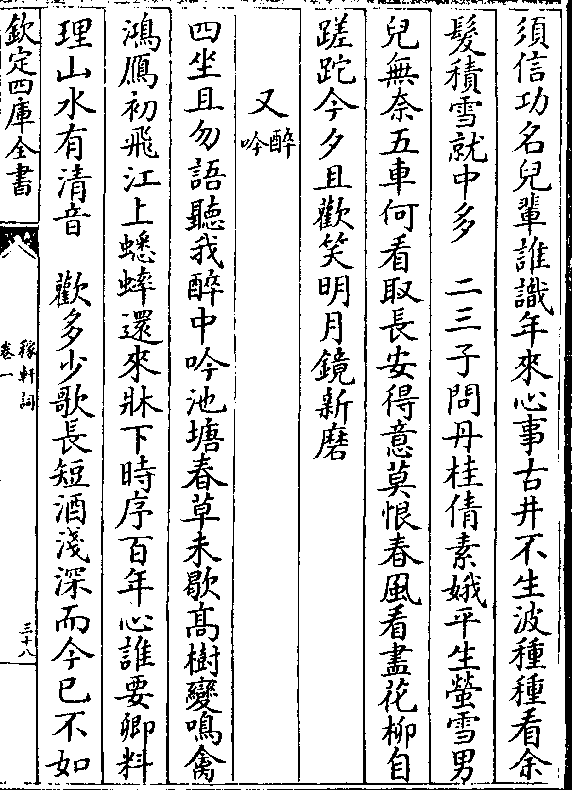 須信功名兒輩誰識年來心事古井不生波種種看余
髮積雪就中多　二三子問丹桂倩素娥平生螢雪男
兒無奈五車何看取長安得意莫恨春風看盡花柳自
蹉跎今夕且歡笑明月鏡新磨
又醉吟
四坐且勿語聽我醉中吟池塘春草未歇髙樹變鳴禽
鴻鴈初飛江上蟋蟀還來牀下時序百年心誰要卿料
理山水有清音　歡多少歌長短酒淺深而今已不如
欽定四庫全書
稼軒詞
卷一
三十八